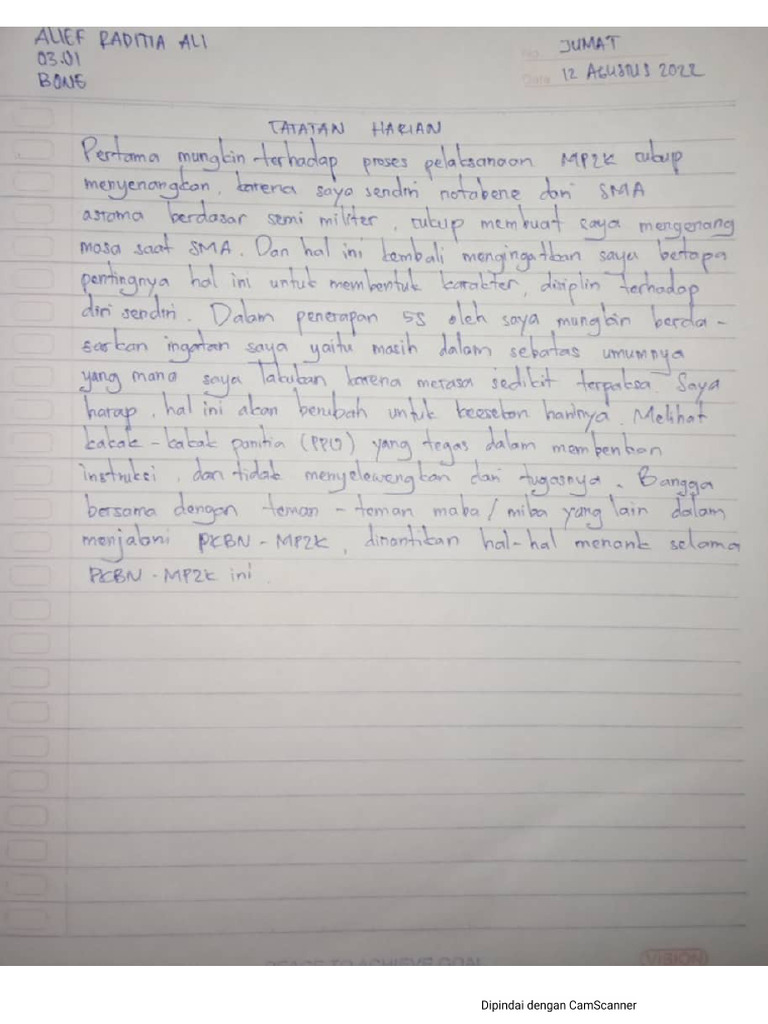 ALIEF RADITIA ALI
03.01
BONE
No.
JUMAT
Date
12 AGUSTUS 2022
CATATAN HARIAN
Pertama mungkin terhadap proses pelaksanaan MP2K cukup
menyenangkan, karena saya sendiri notabene dari SMA
asrama berdasar semi militer, cukup membuat saya mengenang
masa saat SMA. Dan hal ini kembali mengingatkan saya betapa
pentingnya hal ini untuk membentuk karakter, disiplin terhadap
diri sendiri. Dalam penerapan 5S oleh saya mungkin berda-
sarkan ingatan saya yaitu masih dalam sebatas umumnya
yang mana saya lakukan karena merasa sedikit terpaksa. Saya
harap, hal ini akan berubah untuk keesokan harinya. Melihat
kakak-kakak panitia (PPO) yang tegas dalam memberikan
instruksi, dan tidak menyelewengkan dari tugasnya. Bangga
bersama dengan teman-teman maba/miba yang lain dalam
menjalani PKBN-MP2K, dinantikan hal-hal menarik selama
PKBN-MP2K ini.
PEACE TO ACHIEVE GOAL
VISION
Dipindai dengan CamScanner